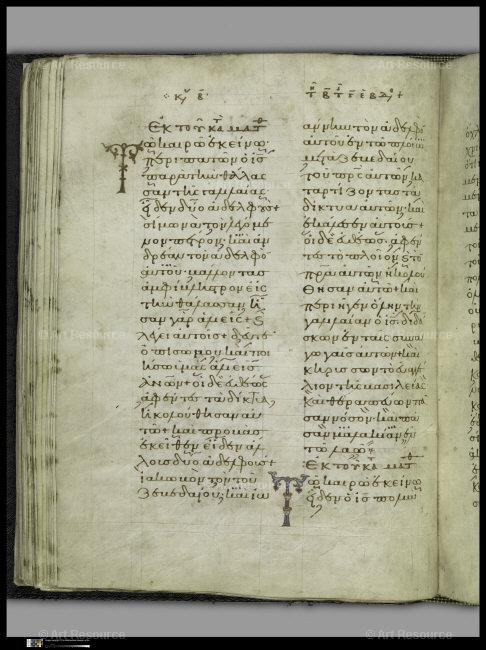 κυ β
Ἐκ τοῦ κατὰ ματθ
Τῷ καιρῷ ἐκείνῳ
περιπατῶν ὁ ις
παρὰ τὴν θάλας
σαν τῆς γαλιλαίας
εἶδεν δύο ἀδελφους +
σίμωνα τὸν λεγόμε
νον πέτρον· καὶ ἀν
δρέαν τὸν ἀδελφὸ
αὐτοῦ· βάλλοντας
ἀμφίβληστρον εἰς
τὴν θάλασσαν· ἦ
σαν γὰρ ἁλιεῖς + καὶ
λέγει αὐτοῖς + δεῦτε
ὀπίσω μου καὶ ποι
ήσω ὑμᾶς ἁλιεῖς
ἀνων + οἱ δὲ εὐθέως
ἀφέντες τὰ δίκτυα,
ἠκολούθησαν αὐ
τῶ + καὶ προβὰς
ἐκεῖθεν εἶδεν ἄλ
λους δύο ἀδελφους +
ἰάκωβον τὸν τοῦ
ζεβεδαίου, καὶ ἰω
άννην τὸν ἀδελφὸ
αὐτοῦ ἐν τῶ πλοίω
μετὰ ζεβεδαίου
τοῦ πρς αὐτῶν κα
ταρτίζοντας τὰ
δίκτυα αὐτῶν· καὶ
ἐκάλεσεν αὐτούς +
οἱ δὲ εὐθέως ἀφέν
τες τὸ πλοῖον καὶ τὸ
πρα αὐτῶν ἠκολού
θησαν αὐτῶ + καὶ
περιῆγεν ὅλην τὴν
γαλιλαίαν ὁ ις διδά
σκων ἐν ταῖς συνα
γωγαῖς αὐτῶν + καὶ
κηρύσσων τὸ εὐαγγέ
λιον τῆς βασιλείας
καὶ θεραπεύων πᾶ
σαν νόσον· καὶ πᾶ
σαν μαλακίαν ἐν
τῶ λαῶ
Ἐκ τοῦ κατὰ ματθ
Τῷ καιρῷ ἐκείνῳ
εἶδεν ὁ ις πολὺν
© Art Resource
© Art Resource
© Art Resource
© Art Resource